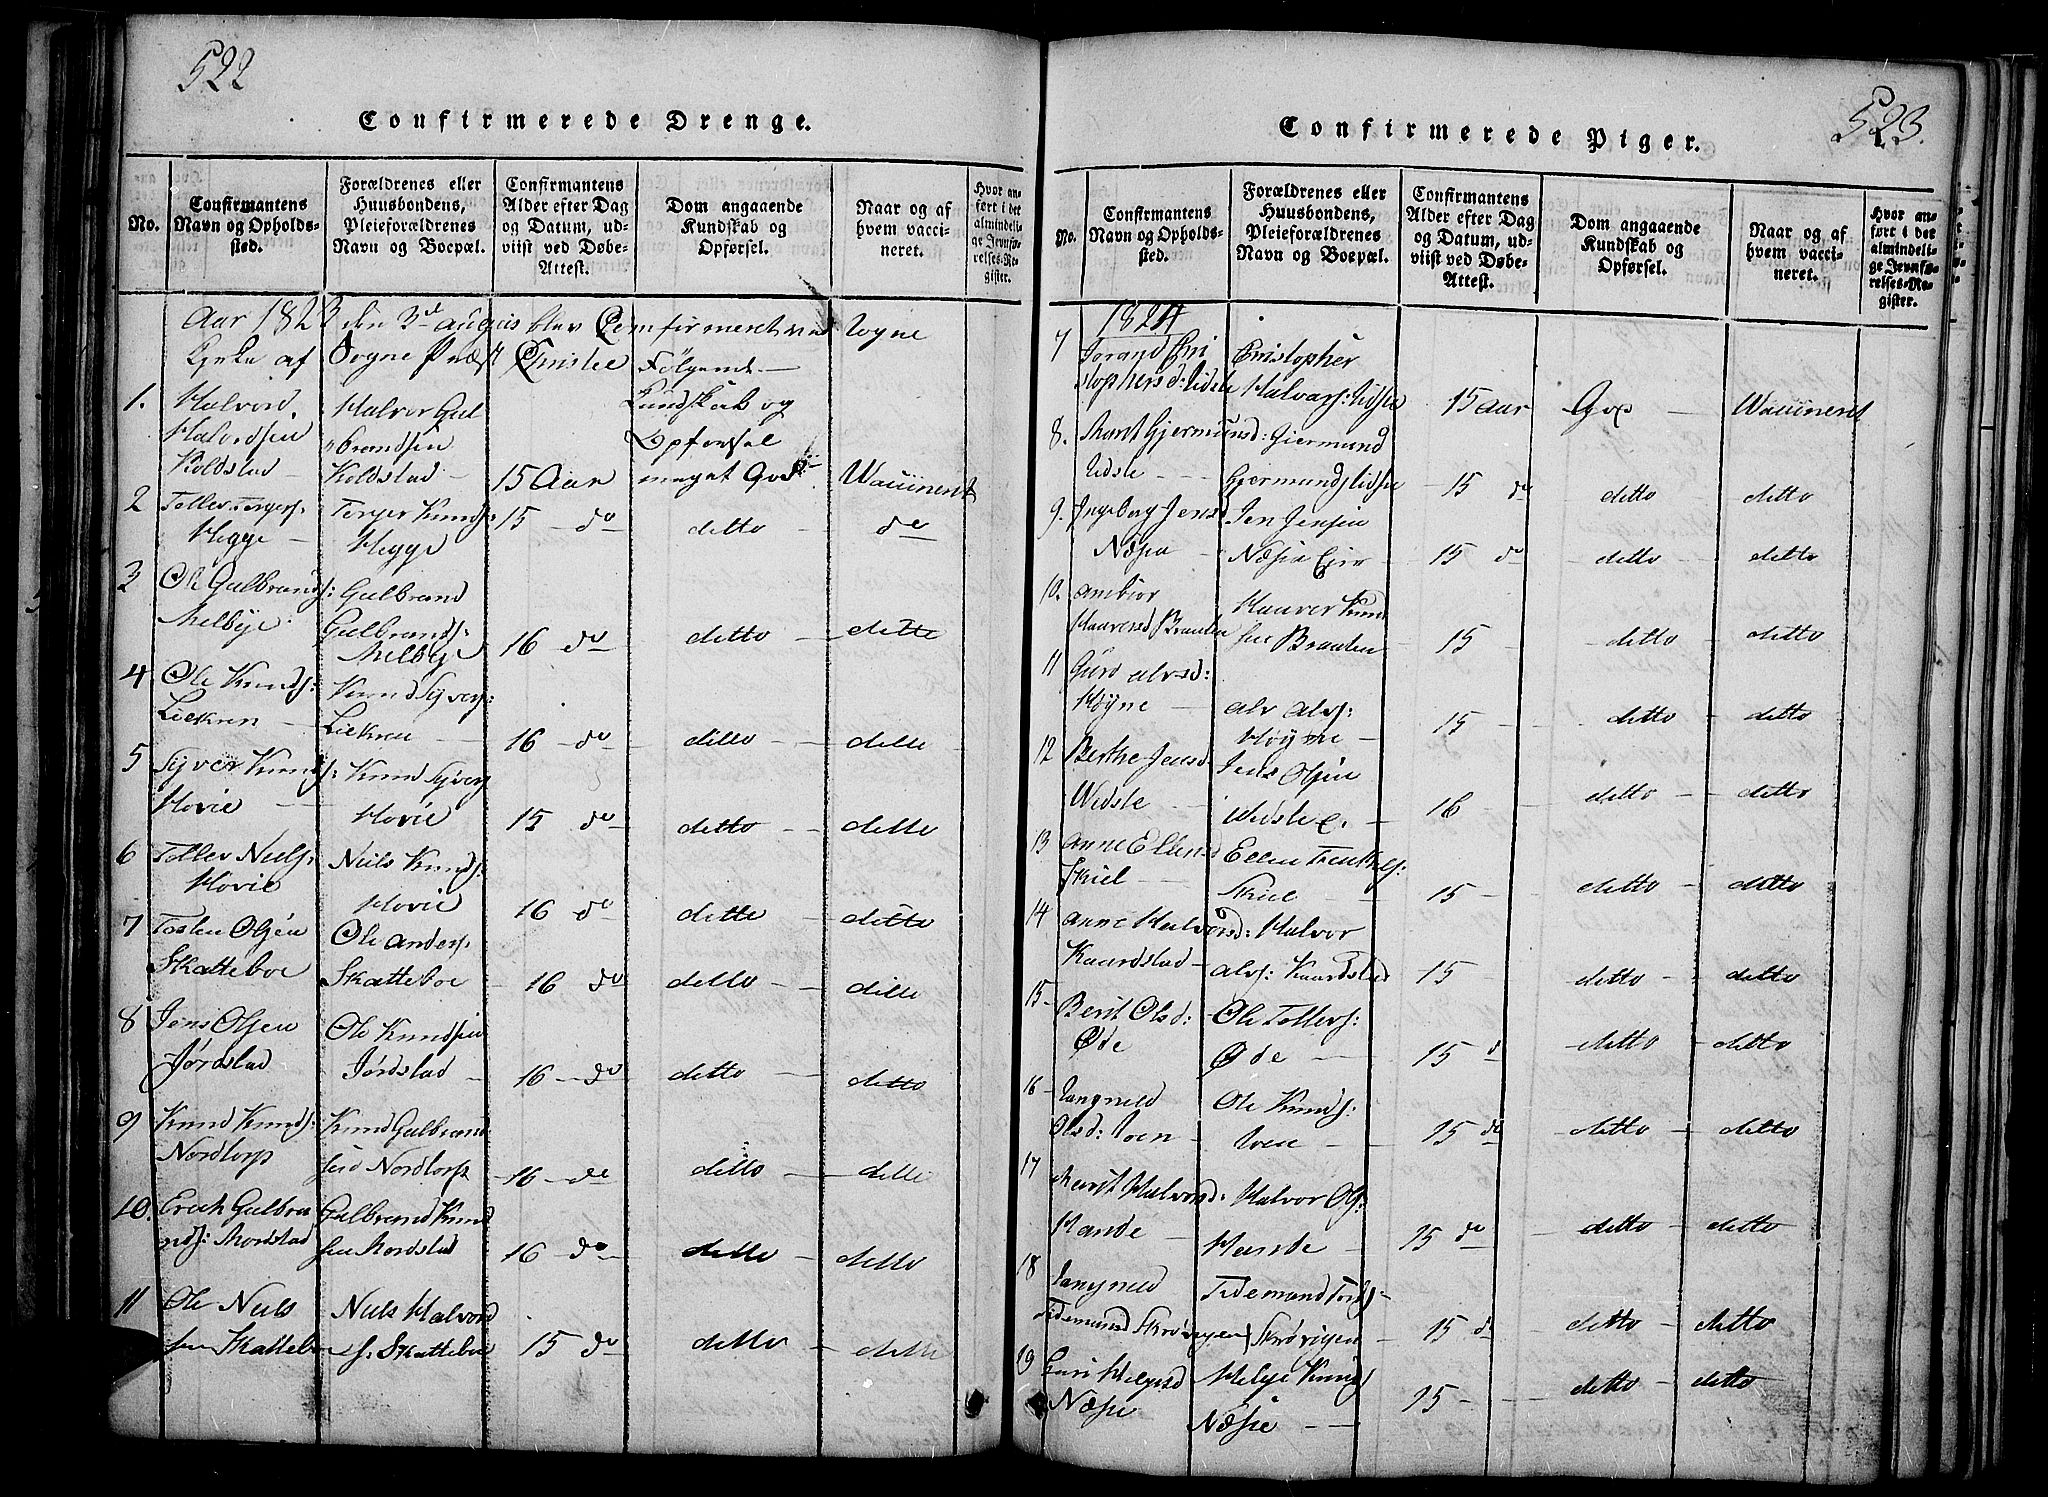 522
Confirmerede Drenge.
No.
Confirmantens Navn og Opholds-sted.
Forældrenes eller Huusbondens, Pleieforældrenes Navn og Boepæl.
Confirmantens Alder efter Dag og Datum, ud-viist ved Døbe-Attest.
Dom angaaende Kundskab og Opførsel.
Naar og af hvem vacci-neret.
Hvor an-ført i det almindeli-ge Jevnfø-relses-Re-gister.
Aar 1823 den 3d augus blev Comfirmeret ved Vogne
Kirke af Sogne Præst Christie Følgende
1. Halvord Halvordsen Koldstad Halvor Gulbrandsen Koldstad 15 Aar Kundskab og Opførsel meget God Wauineret
2 Tollev Torgers: Hegge Torger Knuds: Hegge 15 do ditto do
3 Ole Gulbrands: Melbye Gulbrand Gulbrands: Melbye 16 do ditto ditto
4 Ole Knuds: Liekren Knud Syvers: Liekren 16 do ditto ditto
5 Syver Knuds: Hovie Knud Syvers Hovie 15 do ditto ditto
6 Tollev Niels: Hovie Niels Knuds: Hovie 16 do ditto ditto
7 Tosten Olsen Skatteboe Ole Anders: Skatteboe 16 do ditto ditto
8 Jens Olsen Jørdstad Ole Knudsen Jørdstad 16 do ditto ditto
9 Knud Knuds: Nordtorp Knud Gulbrandsen Nordtorp 16 do ditto ditto
10. Erich Gulbrands: Mordstad Gulbrand Knudsen Mordstad 16 do ditto ditto
11 Ole Nielssen Skattebo Niels Halvords: Skatteboe 15 do ditto ditto
523.
Confirmerede Piger.
No.
Confirmantens Navn og Opholds-sted.
Forældrenes eller Huusbondens, Pleieforældrenes Navn og Boepæl.
Confirmantens Alder efter Dag og Datum, ud-viist ved Døbe-Attest.
Dom angaaende Kundskab og Opførsel.
Naar og af hvem vacci-neret.
Hvor an-ført i det almindeli-ge Jevnfø-relses-Re-gister.
1824
7 Jorand Christophersd: Udsle Christopher Halvors: Udsle 15 Aar God Wauineret
8. Marit Gjermunds: Udsle Giermund Gjermunds Udsle 15 do ditto ditto
9. Ingeborg Jensd Næsia Jen Jensen Næsia Eier 15 do ditto ditto
10. Anbior Haaversd Braaten Haaver Knudsen Braaten 15 ditto ditto
11 Guro Alvsd: Høyne Alv Alvs: Høyne 15 ditto ditto
12 Berthe Jensd: Widsle Jens Olsen Widsle e. 16 ditto ditto
13 Anne Ellensd Skiel Ellen Skiel 15 ditto ditto
14 Anne Halvorsd: Kaardstad Halvor Alvs: Kaardstad 15 ditto ditto
15 Berit Olsd: Øde Ole Tollevs: Øde 15 d ditto ditto
16 Rangneld Olsd: Ioen Ole Knuds: Ioen 15 do ditto ditto
17 Marit Halvorsd: Hande Halvor Ols: Hande 15 do ditto ditto
18 Rangneld Tidemunsd Skrøvigen Tidemand Skrøvigen 15 d ditto ditto
19 Kari Helgesd Næsie Helge Knuds Næsie 15 ditto ditto